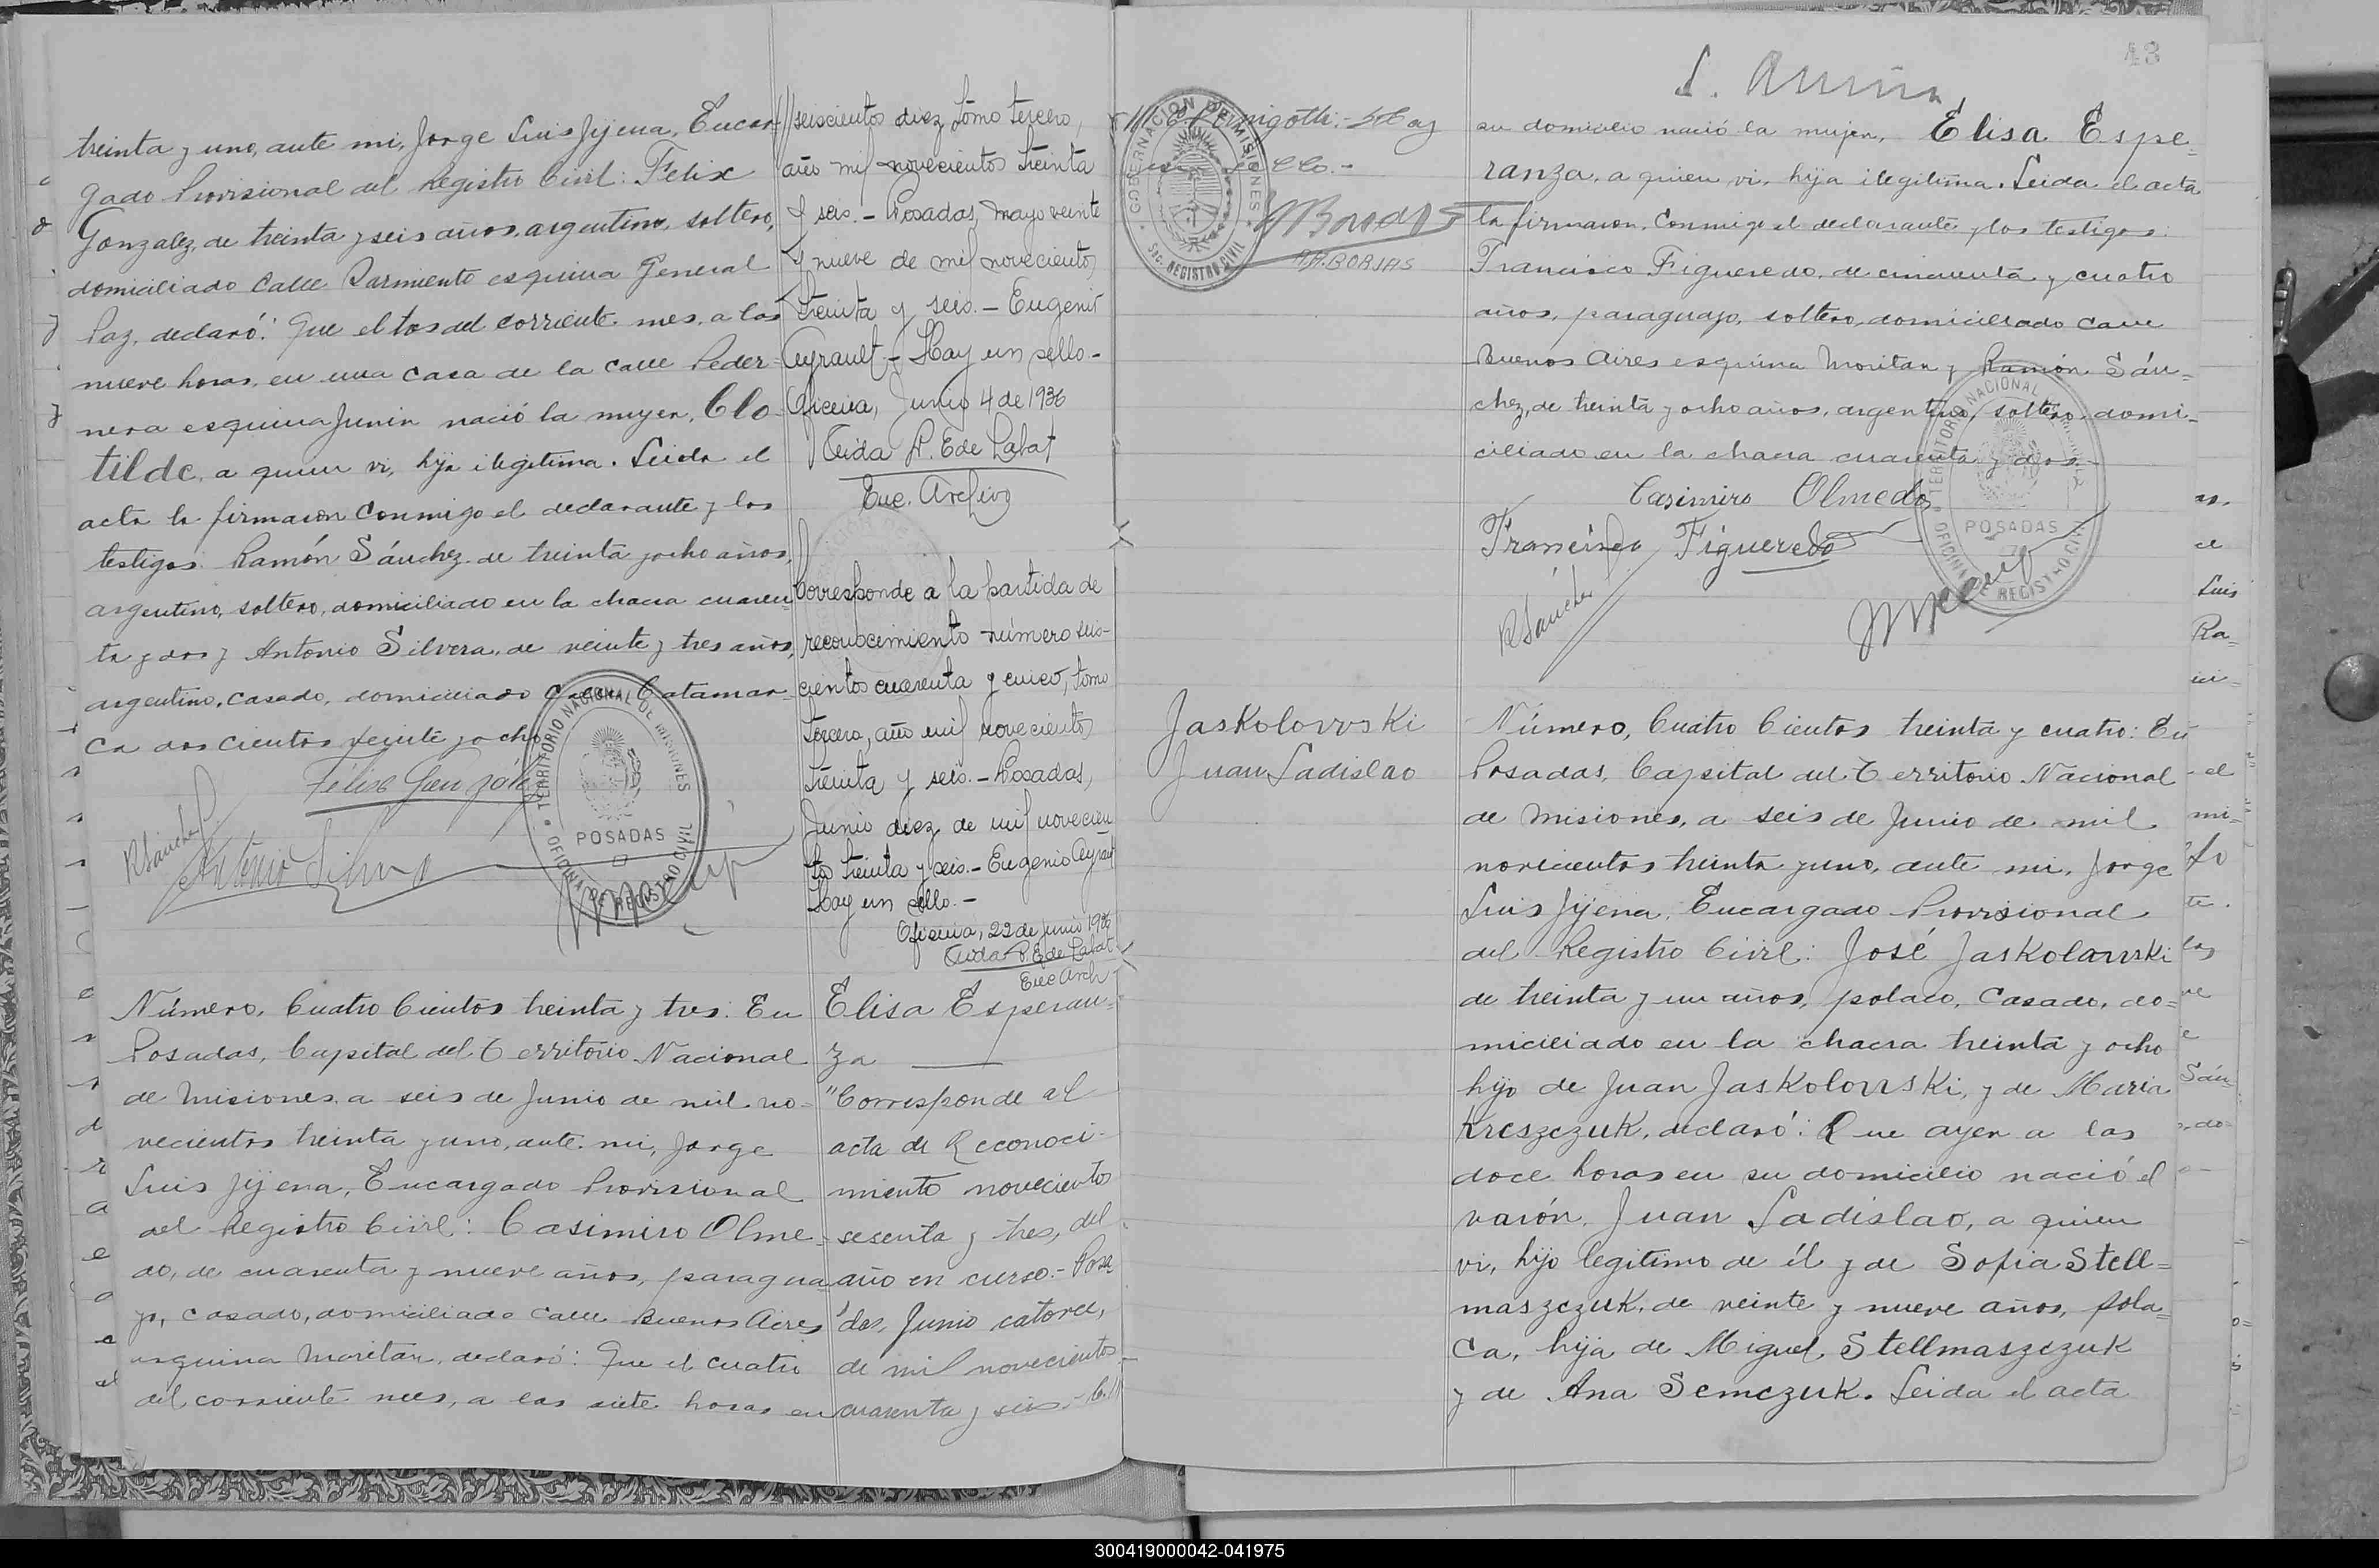 treinta y uno, ante mi, Jorge Luis Jijena, Encar-
gado Provisional del Registro Civil: Felix
Gonzalez, de treinta y seis años, argentino, soltero,
domiciliado Calle Sarmiento esquina General
Paz, declaró: Que el tres del corriente mes, a las
nueve horas, en una casa de la calle Peder-
nera esquina Junin nació la mujer, Clo-
tilde, a quien vi, hija ilegitima. Leida el
acta la firmaron conmigo el declarante y los
testigos: Ramón Sánchez de treinta y ocho años,
argentino, soltero, domiciliado en la chacra cuaren-
ta y dos y Antonio Silvera, de veinte y tres años,
argentino, casado, domiciliado Calle Catamar-
ca dos cientos veinte y ocho
Felix Gonzále
RSanchez
Antonio Silvera
TERRITORIO NACIONAL DE MISIONES
POSADAS
OFICINA DE REGISTRO CIVIL
Número, Cuatro Cientos treinta y tres: En
Posadas, Capital del Territorio Nacional
de Misiones, a seis de Junio de mil no-
vecientos treinta y uno, ante mi, Jorge
Luis Jijena, Encargado Provisional
del Registro Civil: Casimiro Olme-
do, de cuarenta y nueve años, paragua-
yo, casado, domiciliado calle Buenos Aires
esquina Moritan, declaró: Que el cuatro
del corriente mes, a las siete horas en
//seiscientos diez, tomo tercero,
año mil novecientos treinta
y seis.- Posadas, mayo veinte
y nueve de mil novecientos
treinta y seis.- Eugenio
Ayrault - Hay un sello.-
Oficina, Junio 4 de 1936
Enc. Archivo
Corresponde a la partida de
reconocimiento número seis-
cientos cuarenta y cinco, tomo
tercero, año mil novecientos
treinta y seis.- Posadas,
Junio diez de mil novecien
tos treinta y seis.- Eugenio Ayrault
Hay un sello.-
Oficina, 22 de junio 1936
Enc Arch
Elisa Esperan-
za
"Corresponde al
acta de Reconoci-
miento novecientos
sesenta y tres, del
año en curso.- Posa
das, Junio catorce,
de mil novecientos
cuarenta y seis.- C.//
GOBERNACION DE MISIONES
SEC. REGISTRO CIVIL
Hay
A.A. BORJAS
Jaskolowski
Juan Ladislao
43
su domicilio nació la mujer, Elisa Espe-
ranza, a quien vi, hija ilegitima. Leida el acta
la firmaron conmigo el declarante y los testigos:
Francisco Figueredo, de cincuenta y cuatro
años, paraguayo, soltero, domiciliado calle
Buenos Aires esquina Moritan y Ramón Sán-
chez, de treinta y ocho años, argentino, soltero, domi-
ciliado en la chacra cuarenta y dos.-
Casimiro Olmedo
Francisco Figueredo
RSanchez
TERRITORIO NACIONAL
POSADAS
OFICINA DE REGISTRO CIVIL
Número, Cuatro Cientos treinta y cuatro: En
Posadas, Capital del Territorio Nacional
de Misiones, a seis de Junio de mil
novecientos treinta y uno, ante mi, Jorge
Luis Jijena, Encargado Provisional
del Registro Civil: José Jaskolowski
de treinta y un años, polaco, Casado, do-
miciliado en la chacra treinta y ocho
hijo de Juan Jaskolowski, y de Maria
Kreszczuk, declaró: Que ayer a las
doce horas en su domicilio nació el
varón, Juan Ladislao, a quien
vi, hijo legitimo de él y de Sofia Stell-
maszczuk, de veinte y nueve años, pola-
ca, hija de Miguel Stellmaszczuk
y de Ana Semczuk. Leida el acta
Luis
Ra-
300419000042-041975